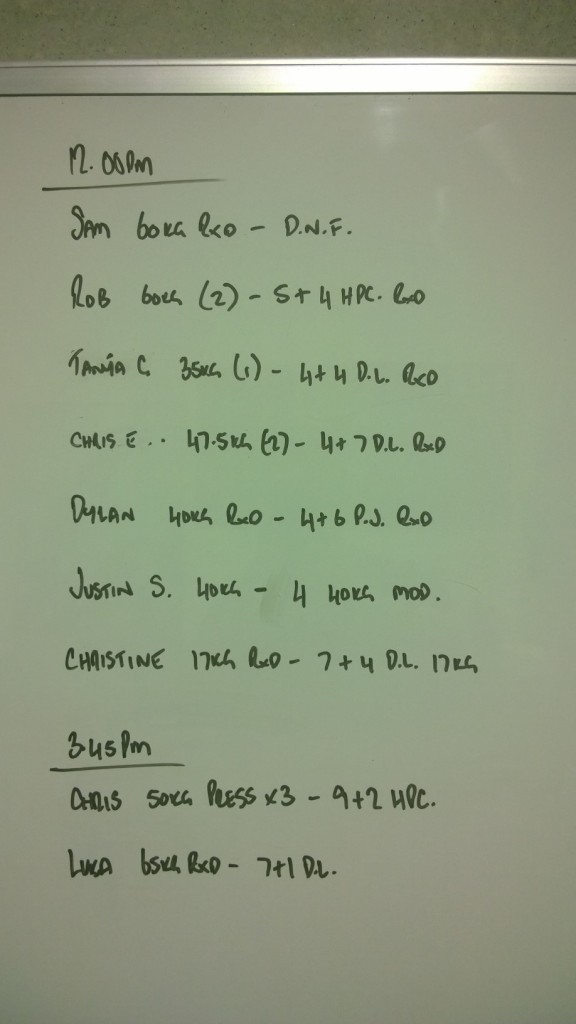 12.00pm
SAM 60KG RXD - D.N.F.
ROB 60KG (2) - 5+4 HPC. RXD
TANIA C. 35KG (1) - 4+4 D.L. RXD
CHRIS E .. 47.5KG (2) - 4+7 D.L. RXD
DYLAN 40KG RXD - 4+6 P.J. RXD
JUSTIN S. 40KG - 4 40KG MOD.
CHRISTINE 17KG RXD - 7+4 D.L. 17KG
3.45pm
CHRIS 50KG PRESS x3 - 9+2 HPC.
LUKA 65KG RXD - 7+1 D.L.